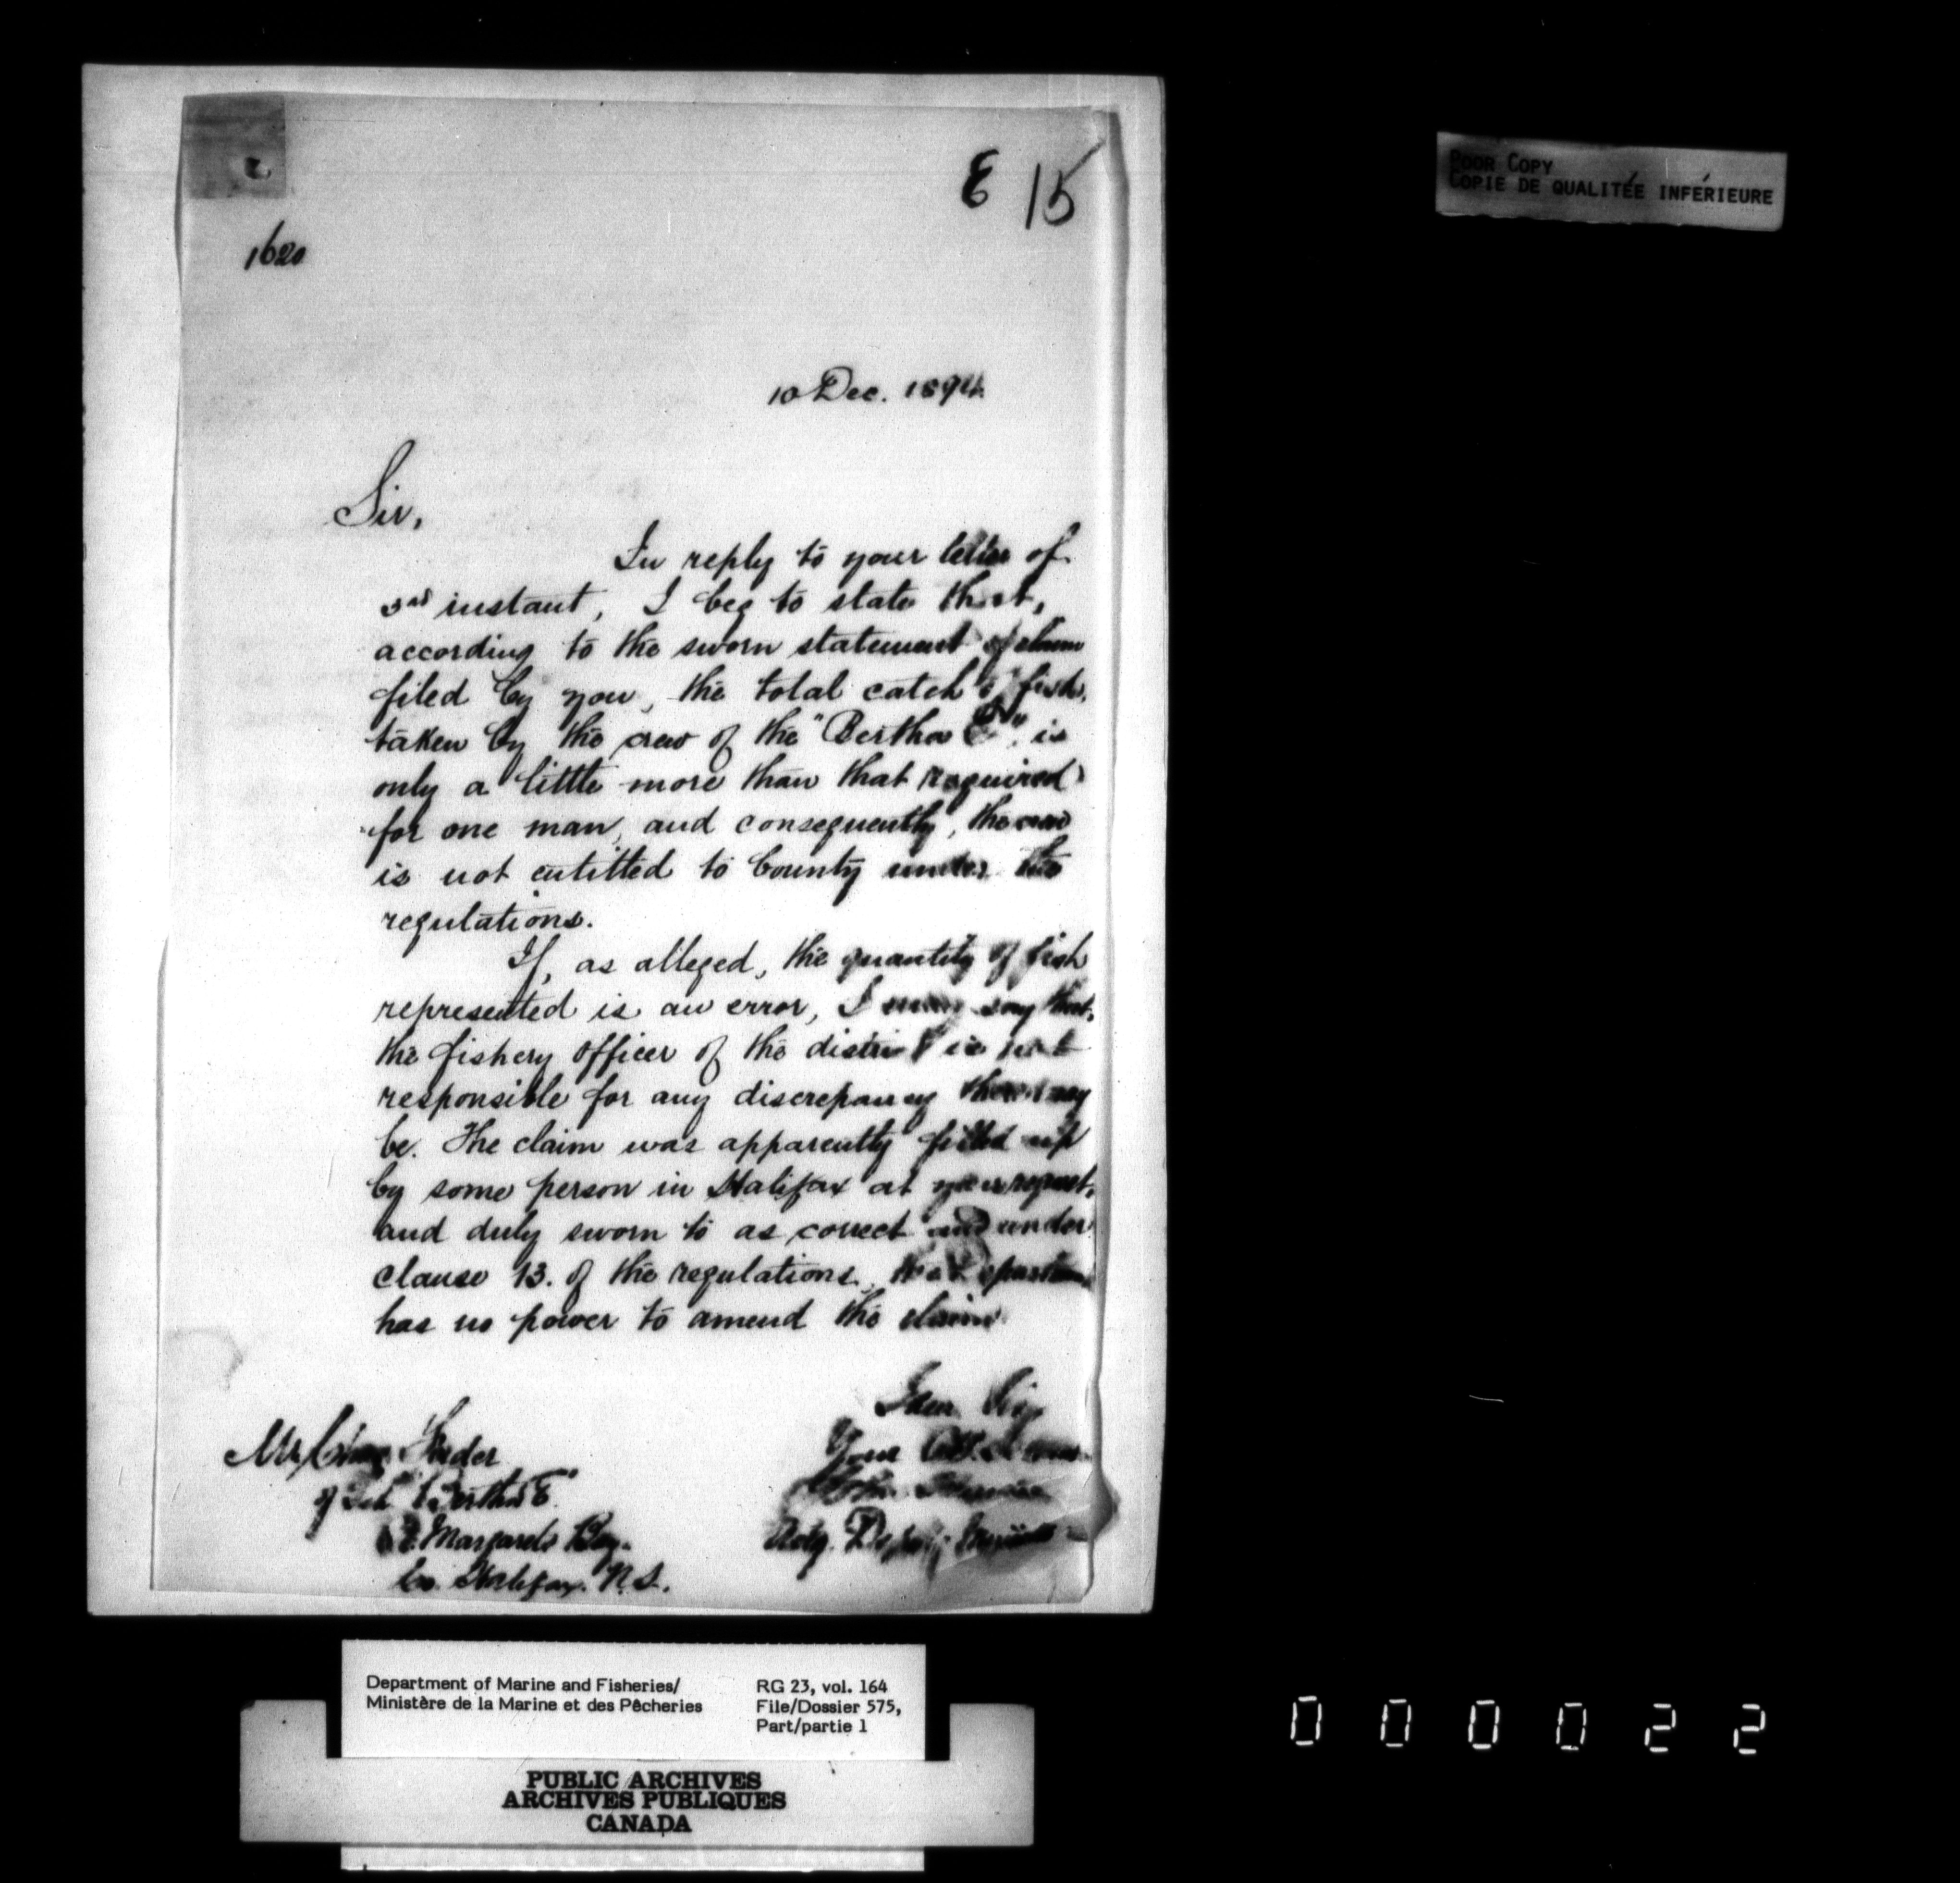 E 15
POOR COPY
COPIE DE QUALITÉE INFÉRIEURE
1620
10 Dec. 1894
Sir,
In reply to your letter of
3rd instant, I beg to state that,
according to the sworn statement of claim
filed by you, the total catch of fish,
taken by the crew of the "Bertha E", is
only a little more than that required
for one man, and consequently, the crew
is not entitled to bounty under the
regulations.
If, as alleged, the quantity of fish
represented is an error, I may say that,
the fishery officer of the district is not
responsible for any discrepancy there may
be. The claim was apparently filled up
by some person in Halifax at your request,
and duly sworn to as correct and under
clause 13. of the regulations, the Department
has no power to amend the claim
I am Sir
Your
John
Actg. Deputy Minister
Mr.
of Sch "Bertha E"
St. Margarets Bay.
Co. Halifax. N.S.
Department of Marine and Fisheries/
Ministère de la Marine et des Pêcheries
RG 23, vol. 164
File/Dossier 575,
Part/partie 1
PUBLIC ARCHIVES
ARCHIVES PUBLIQUES
CANADA
000022